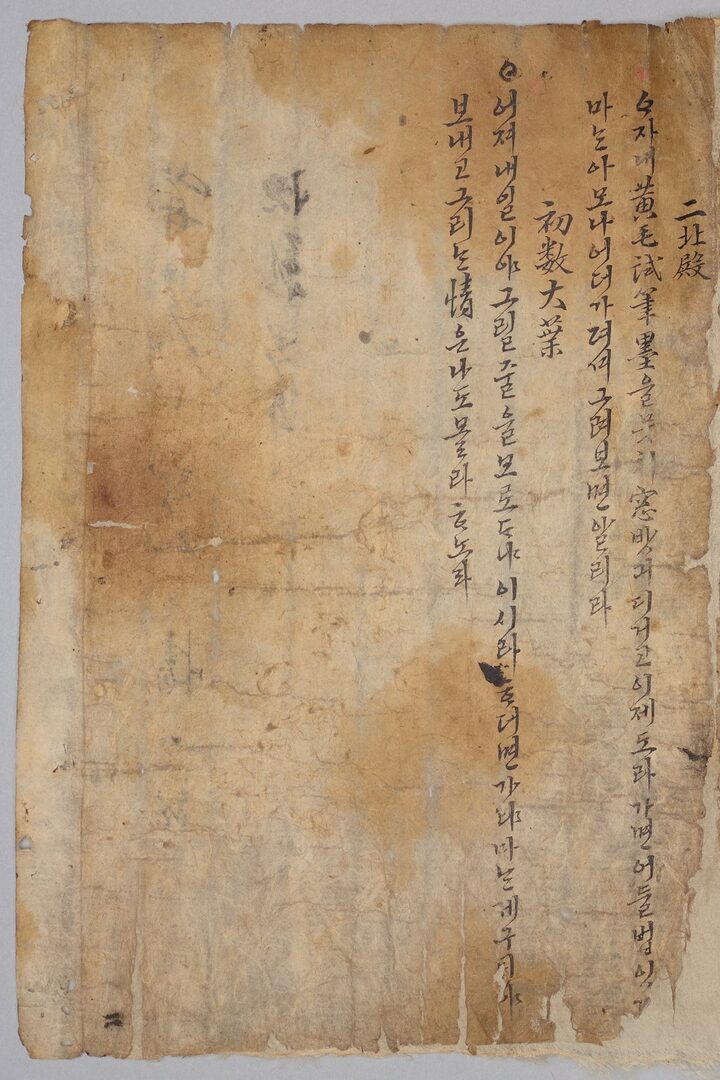 二北殿
ᄋᆞ자내黃毛試筆墨을뭇쳐窓밧긔디거고이제도라가면어들법잇
마ᄂᆞᆫ아모나어더가져셔그려보면알리라
初数大葉
어져내일이야그릴줄을모로ᄃᆞ냐이시라ᄒᆞ더면가랴마ᄂᆞᆫ제구ᄐᆞ야
보내고그리ᄂᆞᆫ情은나도몰라ᄒᆞ노라
二